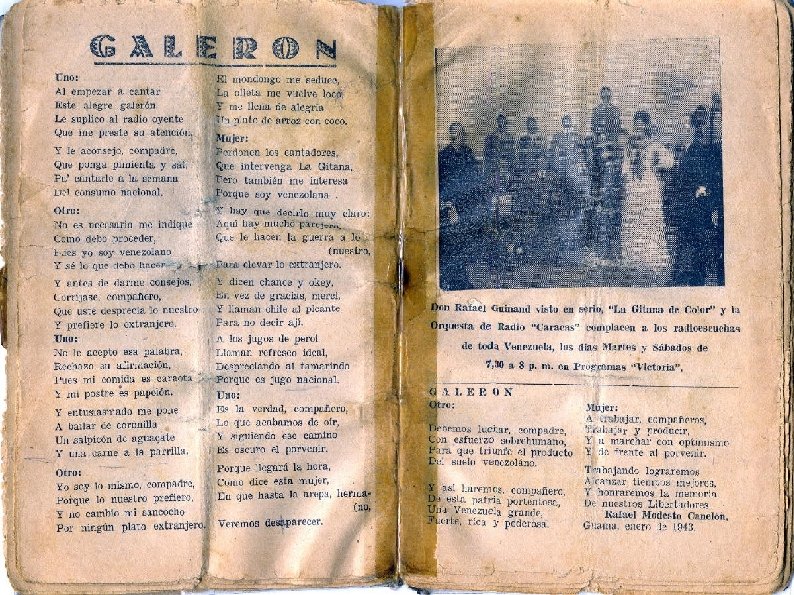 GALERON
Uno:
Al empezar a cantar
Este alegre galerón
Le suplico al radio oyente
Que me preste su atención,
Y le aconsejo, compadre,
Que ponga pimienta y sal,
Pa' cantarle a la semana
Del consumo nacional.
Otro:
No es necesario me indique
Como debo proceder,
Pues yo soy venezolano
Y sé lo que debo hacer
Y antes de darme consejos,
Corríjase, compañero,
Que usté desprecia lo nuestro
Y prefiere lo extranjero.
Uno:
No le acepto esa palabra,
Rechazo su afirmación,
Pues mi comida es caraota
Y mi postre es papelón.
Y entusiasmado me pone
A bailar de coronilla
Un salpicón de aguacate
Y una carne a la parrilla.
Otro:
Yo soy lo mismo, compadre,
Porque lo nuestro prefiero,
Y no cambio mi sancocho
Por ningún plato extranjero.
El mondongo me seduce,
La olleta me vuelve loco
Y me llena de alegría
Un plato de arroz con coco.
Mujer:
Perdonen los cantadores,
Que intervenga La Gitana,
Pero también me interesa
Porque soy venezolana.
Y hay que decirlo muy claro:
Aquí hay mucho parejero,
Que le hacen la guerra a lo
(nuestro,
Para elevar lo extranjero.
Y dicen chance y okey,
En vez de gracias, mercí,
Y llaman chile al picante
Para no decir ají.
A los jugos de perol
Llaman refresco ideal,
Despreciando al tamarindo
Porque es jugo nacional.
Uno:
Es la verdad, compañero,
Lo que acabamos de oír,
Y siguiendo ese camino
Es oscuro el porvenir.
Porque llegará la hora,
Como dice esta mujer,
En que hasta la arepa, herma-
(no,
Veremos desaparecer.
Don Rafael Guinand visto en serio, "La Gitana de Color" y la
Orquesta de Radio "Caracas" complacen a los radioescuchas
de toda Venezuela, los días Martes y Sábados de
7,30 a 8 p. m. en Programas "Victoria".
GALERON
Otro:
Debemos luchar, compadre,
Con esfuerzo sobrehumano,
Para que triunfe el producto
Del suelo venezolano.
Y así haremos, compañero,
De esta patria portentosa,
Una Venezuela grande,
Fuerte, rica y poderosa.
Mujer:
A trabajar, compañeros,
Trabajar y producir,
Y a marchar con optimismo
Y de frente al porvenir.
Trabajando lograremos
Alcanzar tiempos mejores,
Y honraremos la memoria
De nuestros Libertadores
Rafael Modesto Canelón,
Guama, enero de 1943.